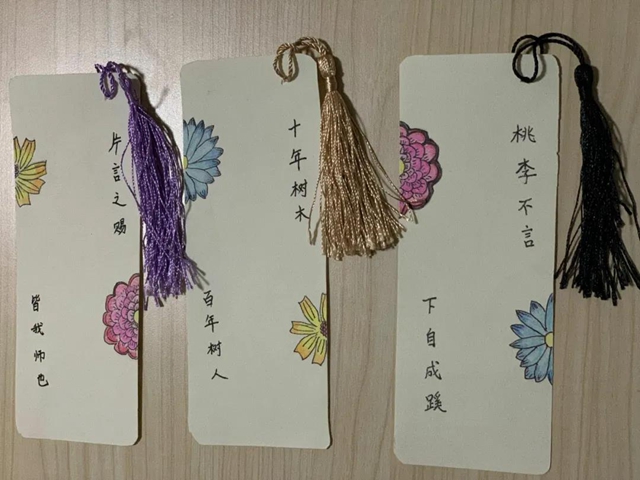 片言之赐
皆我师也
十年树木
百年树人
桃李不言
下自成蹊